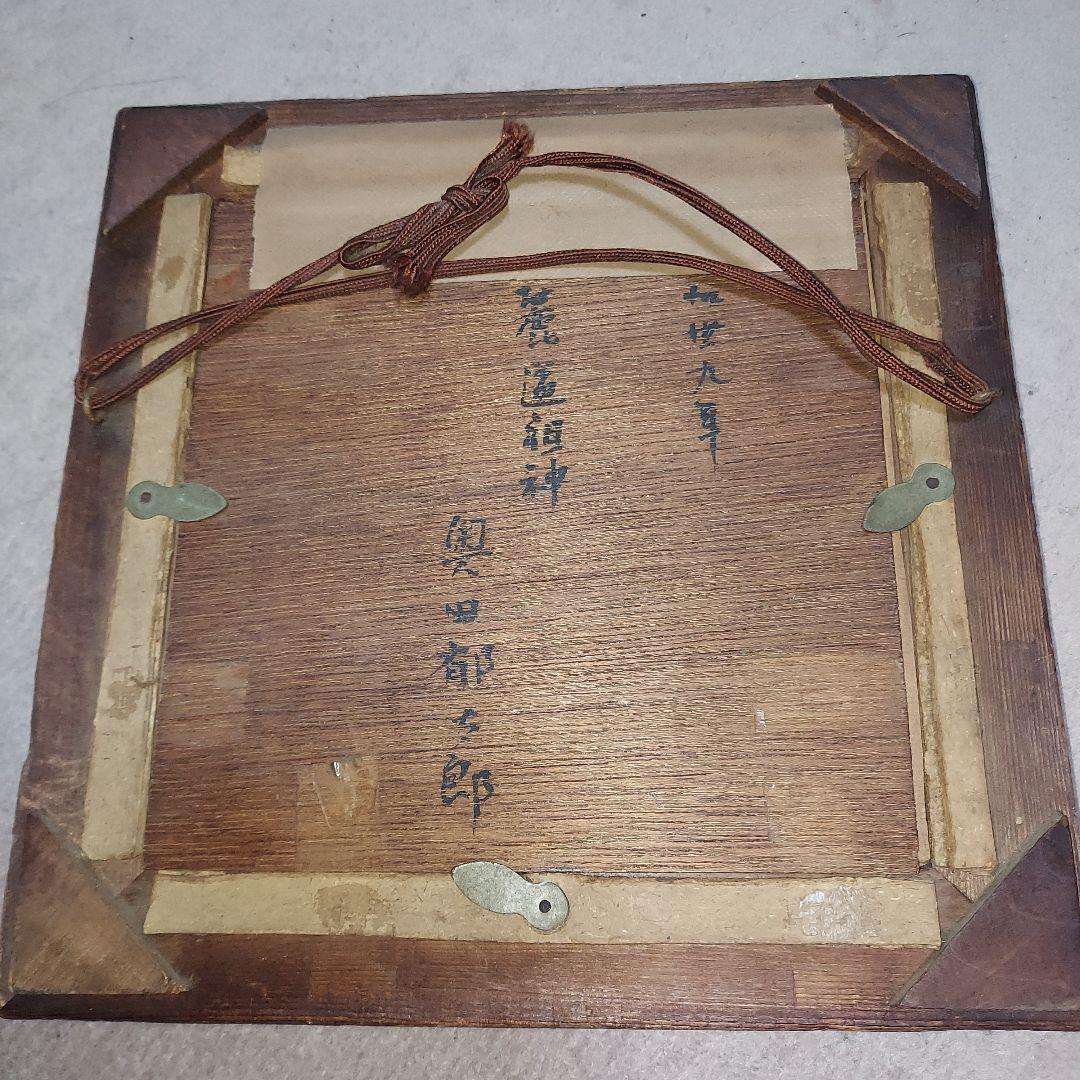 和丗九年
麓道祖神
奥田郁太郎